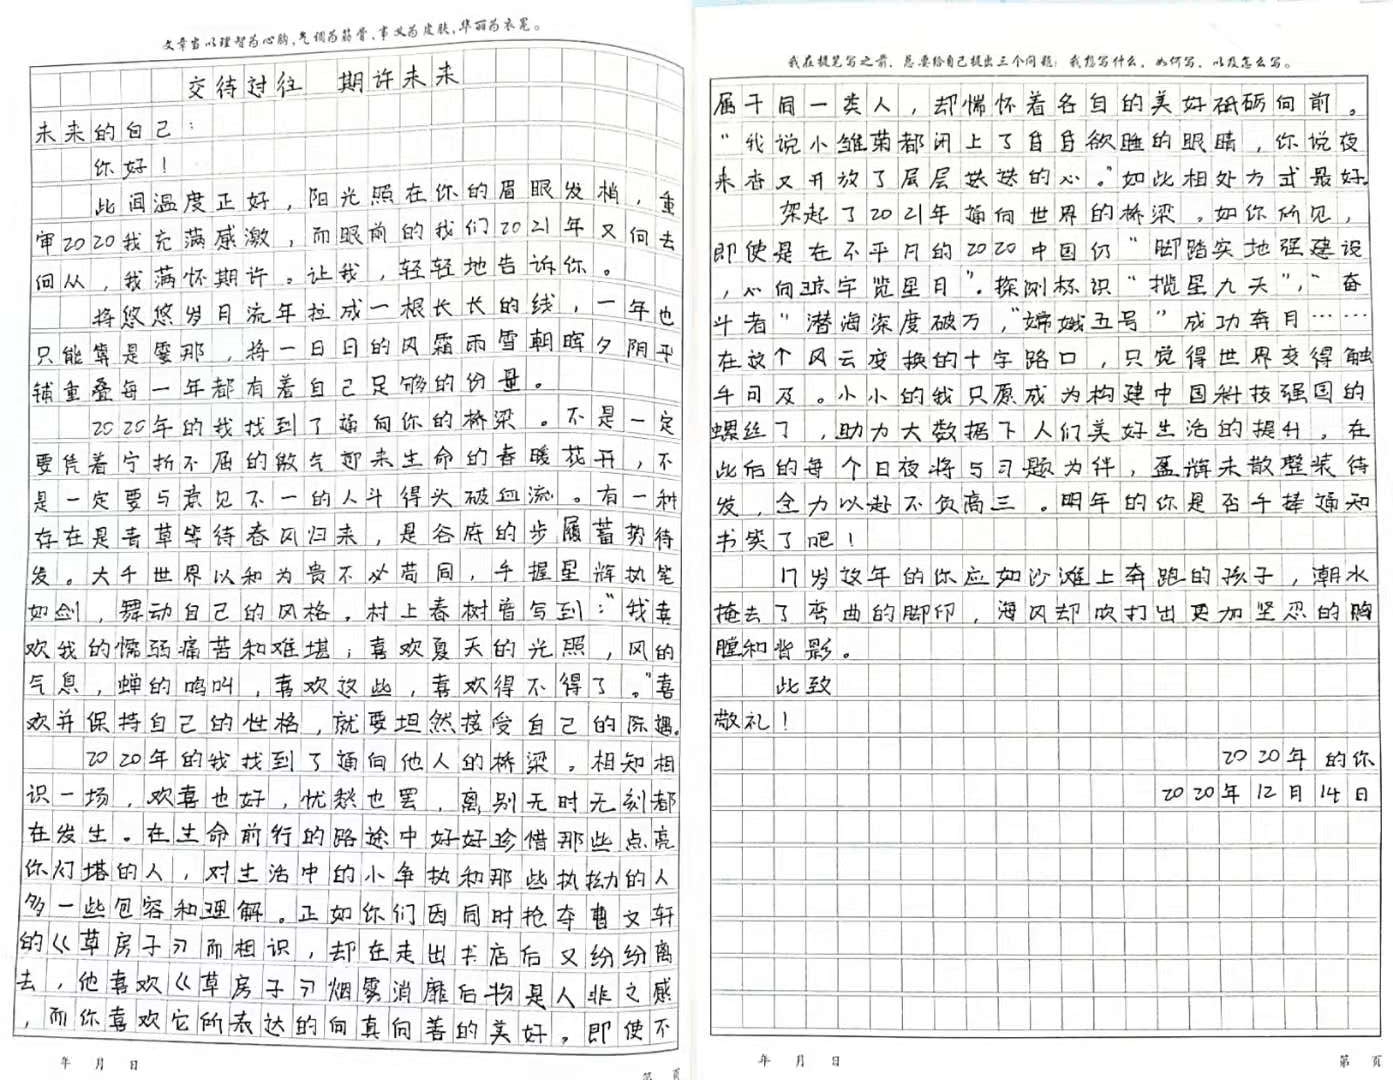 文章当以理智为心胸，气调为筋骨，事义为皮肤，华丽为衣冕。
交待过往 期许未来
未来的自己：
你好！
此间温度正好，阳光照在你的眉眼发梢，重
审2020我充满感激，而眼前的我们2021年又何去
何从，我满怀期许。让我，轻轻地告诉你。
将悠悠岁月流年拉成一根长长的线，一年也
只能算是霎那，将一日日的风霜雨雪朝晖夕阴平
铺重叠每一年都有着自己足够的份量。
2020年的我找到了通向你的桥梁。不是一定
要凭着宁折不屈的傲气迎来生命的春暖花开，不
是一定要与意见不一的人斗得头破血流。有一种
存在是青草等待春风归来，是谷府的步履蓄势待
发。大千世界以和为贵不必苟同，手握星辉执笔
如剑，舞动自己的风格。村上春树曾写到：“我喜
欢我的懦弱痛苦和难堪；喜欢夏天的光照，风的
气息，蝉的鸣叫，喜欢这些，喜欢得不得了。”喜
欢并保持自己的性格，就要坦然接受自己的际遇。
2020年的我找到了通向他人的桥梁。相知相
识一场，欢喜也好，忧愁也罢，离别无时无刻都
在发生。在生命前行的路途中好好珍惜那些点亮
你灯塔的人，对生活中的小争执和那些执拗的人
多一些包容和理解。正如你们因同时抢夺曹文轩
的《草房子》而相识，却在走出书店后又纷纷离
去，他喜欢《草房子》烟雾消靡后物是人非之感
，而你喜欢它所表达的向真向善的美好。即使不
年 月 日
第 页
我在提笔写之前，总要给自己提出三个问题：我想写什么，如何写，以及怎么写。
属于同一类人，却惴怀着各自的美好砥砺向前。
“我说小雏菊都闭上了昏昏欲睡的眼睛，你说夜
来香又开放了层层迭迭的心。”如此相处方式最好。
架起了2021年通向世界的桥梁。如你所见，
即使是在不平凡的2020中国仍“脚踏实地强建设
，心向琼宇览星日”。探测标识“揽星九天”，“奋
斗者”潜海深度破万，“嫦娥五号”成功奔月……
在这个风云变换的十字路口，只觉得世界变得触
手可及。小小的我只愿成为构建中国科技强国的
螺丝丁，助力大数据下人们美好生活的提升。在
此后的每个日夜将与习题为伴，盔辉未散整装待
发，全力以赴不负高三。明年的你是否手捧通知
书笑了吧！
17岁这年的你应如沙滩上奔跑的孩子，潮水
掩去了弯曲的脚印，海风却吹打出更加坚忍的胸
膛和背影。
此致
敬礼！
2020年的你
2020年12月14日
年 月 日
第 页